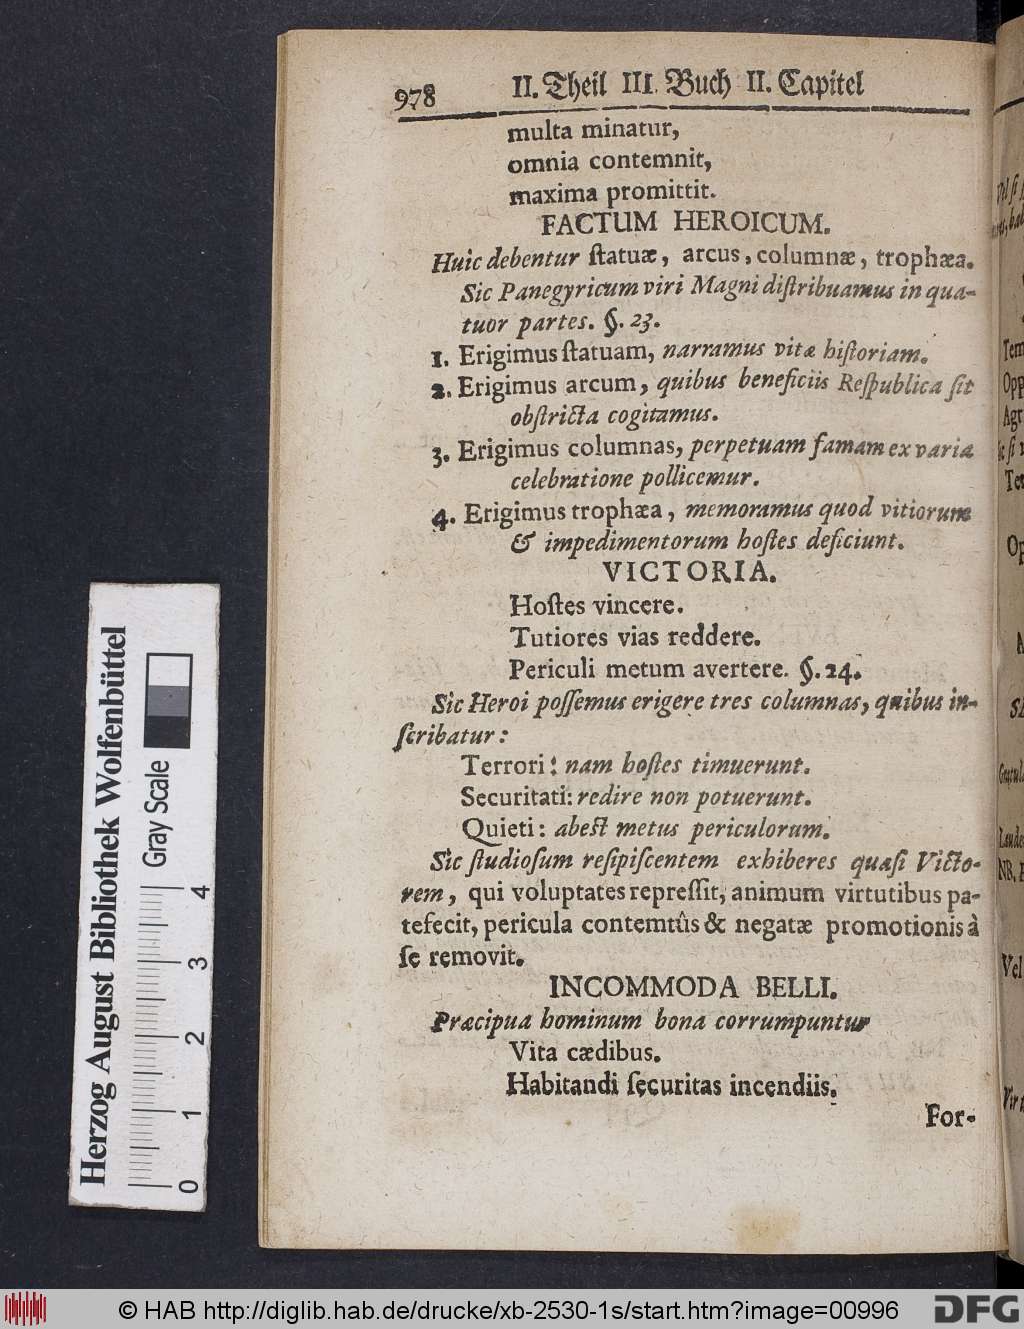 978 II. Theil III. Buch II. Capitel
multa minatur,
omnia contemnit,
maxima promittit.
FACTUM HEROICUM.
Huic debentur ſtatuæ, arcus, columnæ, trophæa.
Sic Panegyricum viri Magni diſtribuamus in qua-
tuor partes. §. 23.
1. Erigimus ſtatuam, narramus vitæ hiſtoriam.
2. Erigimus arcum, quibus beneficiis Reſpublica ſit
obſtricta cogitamus.
3. Erigimus columnas, perpetuam famam ex varia
celebratione pollicemur.
4. Erigimus trophæa, memoramus quod vitiorum
& impedimentorum hoſtes deficiunt.
VICTORIA.
Hoſtes vincere.
Tutiores vias reddere.
Periculi metum avertere. §. 24.
Sic Heroi poſſemus erigere tres columnas, quibus in-
ſcribatur:
Terrori: nam hoſtes timuerunt.
Securitati: redire non potuerunt.
Quieti: abeſt metus periculorum.
Sic ſtudioſum reſipiſcentem exhiberes quaſi Victo-
rem, qui voluptates repreſſit, animum virtutibus pa-
tefecit, pericula contemtûs & negatæ promotionis à
ſe removit.
INCOMMODA BELLI.
Præcipua hominum bona corrumpuntur
Vita cædibus.
Habitandi ſecuritas incendiis.
For-
Herzog August Bibliothek Wolfenbüttel
Gray Scale
0 1 2 3 4
© HAB http://diglib.hab.de/drucke/xb-2530-1s/start.htm?image=00996
DFG